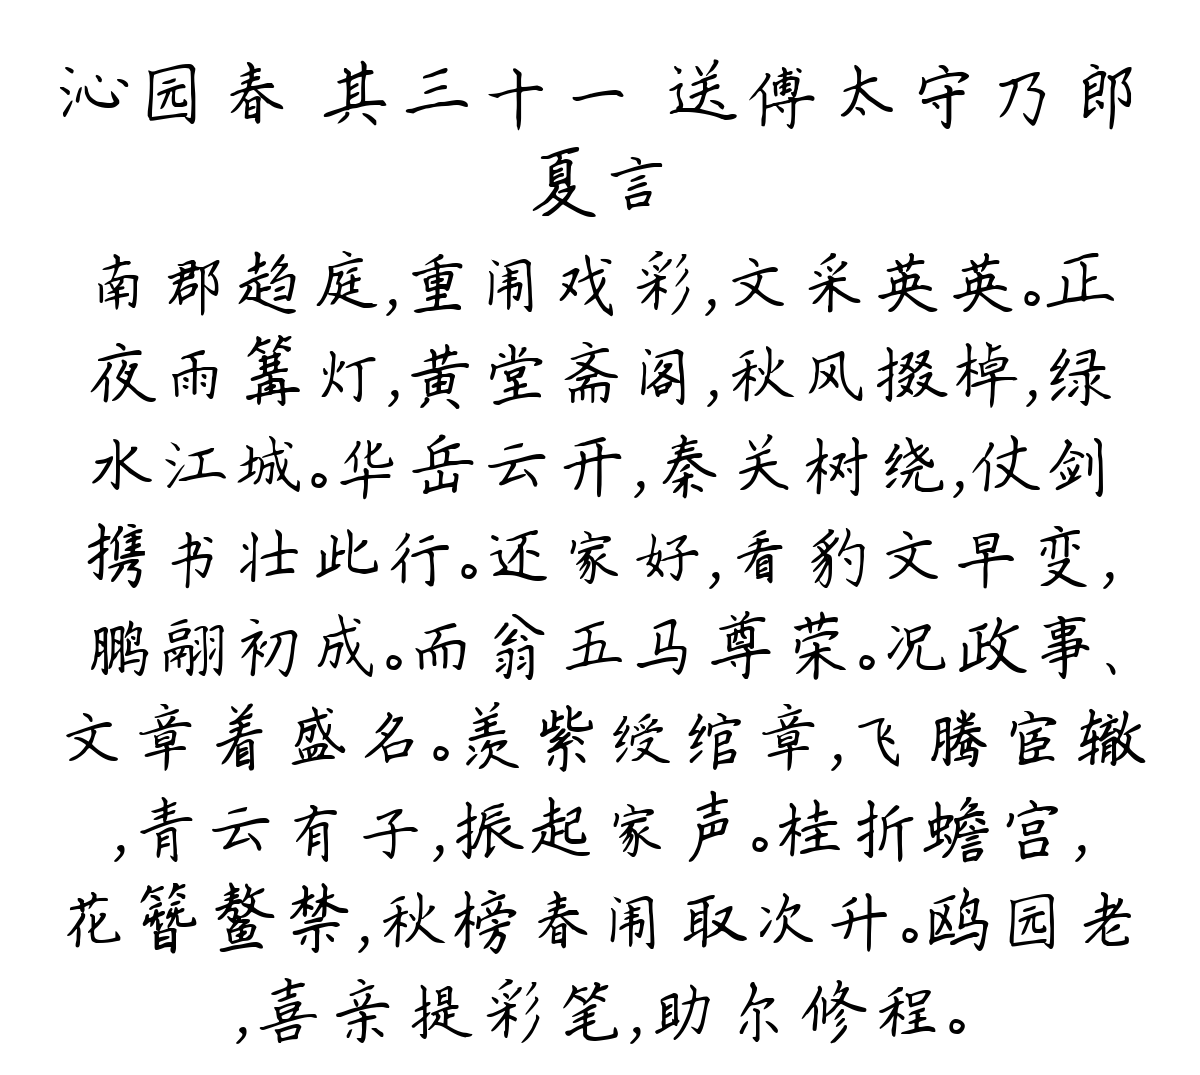 沁园春 其三十一 送傅太守乃郎
夏言
南郡趋庭,重闱戏彩,文采英英。正
夜雨篝灯,黄堂斋阁,秋风掇棹,绿
水江城。华岳云开,秦关树绕,仗剑
携书壮此行。还家好,看豹文早变,
鹏翮初成。而翁五马尊荣。况政事、
文章着盛名。羡紫绶绾章,飞腾宦辙
,青云有子,振起家声。桂折蟾宫,
花簪鳌禁,秋榜春闱取次升。鸥园老
,喜亲提彩笔,助尔修程。